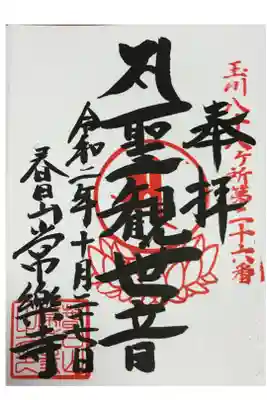 玉川八十八ヶ所第二十六番
奉拝
聖観世音
令和二年十月二七日
春日山常樂寺